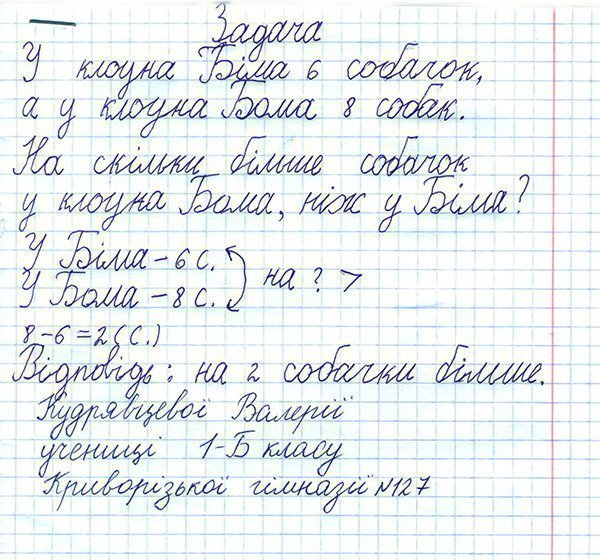 Задача
У клоуна Біма 6 собачок,
а у клоуна Бома 8 собак.
На скільки більше собачок
у клоуна Бома, ніж у Біма?
У Біма – 6 с.
У Бома – 8 с.
на ? >
8 – 6 = 2 (с.)
Відповідь: на 2 собачки більше.
Кудрявцевої Валерії
учениці 1-Б класу
Криворізької гімназії №127